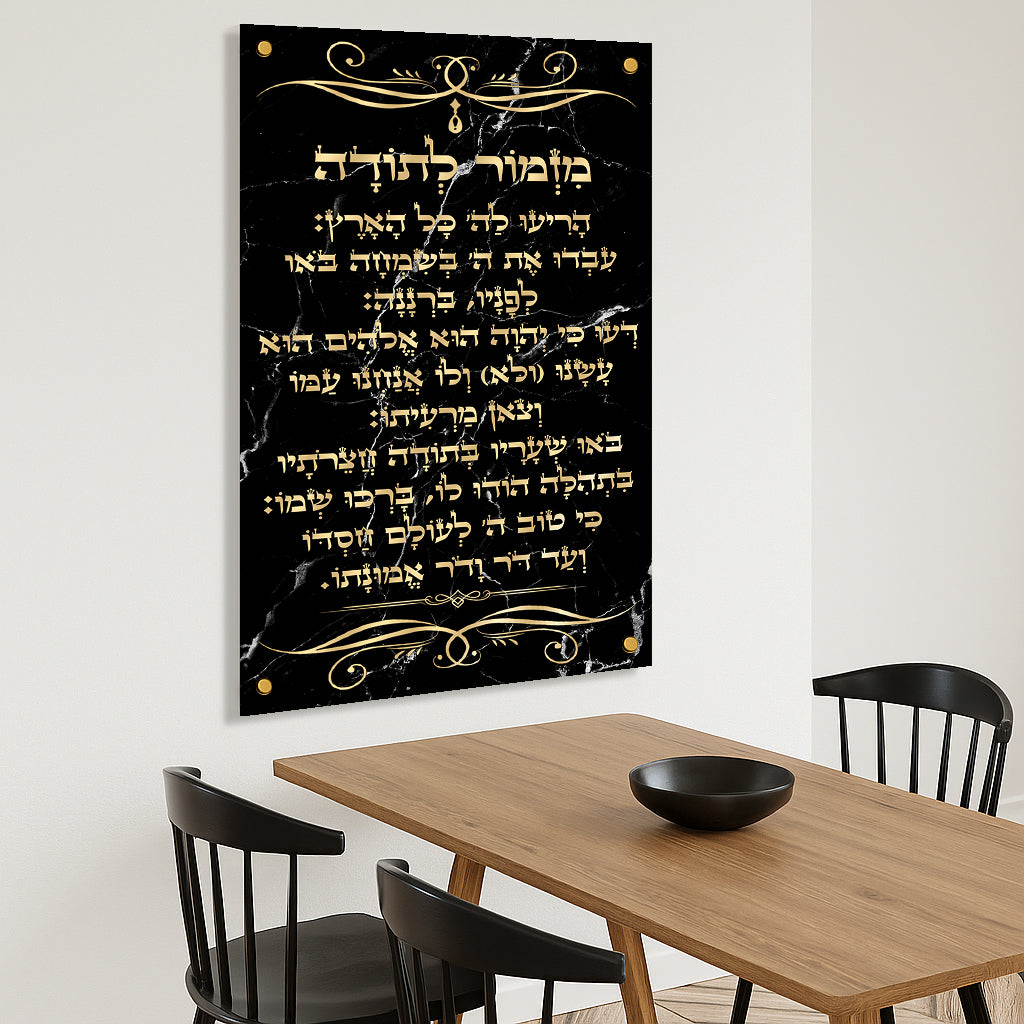 מִזְמוֹר לְתוֹדָה
הָרִיעוּ לַה' כָּל הָאָרֶץ:
עִבְדוּ אֶת ה' בְּשִׂמְחָה בֹּאוּ
לְפָנָיו, בִּרְנָנָה:
דְּעוּ כִּי יְהוָה הוּא אֱלֹהִים הוּא
עָשָׂנוּ (ולא) וְלוֹ אֲנַחְנוּ עַמּוֹ
וְצֹאן מַרְעִיתוֹ:
בֹּאוּ שְׁעָרָיו בְּתוֹדָה חֲצֵרֹתָיו
בִּתְהִלָּה הוֹדוּ לוֹ, בָּרְכוּ שְׁמוֹ:
כִּי טוֹב ה' לְעוֹלָם חַסְדּוֹ
וְעַד דֹּר וָדֹר אֱמוּנָתוֹ.